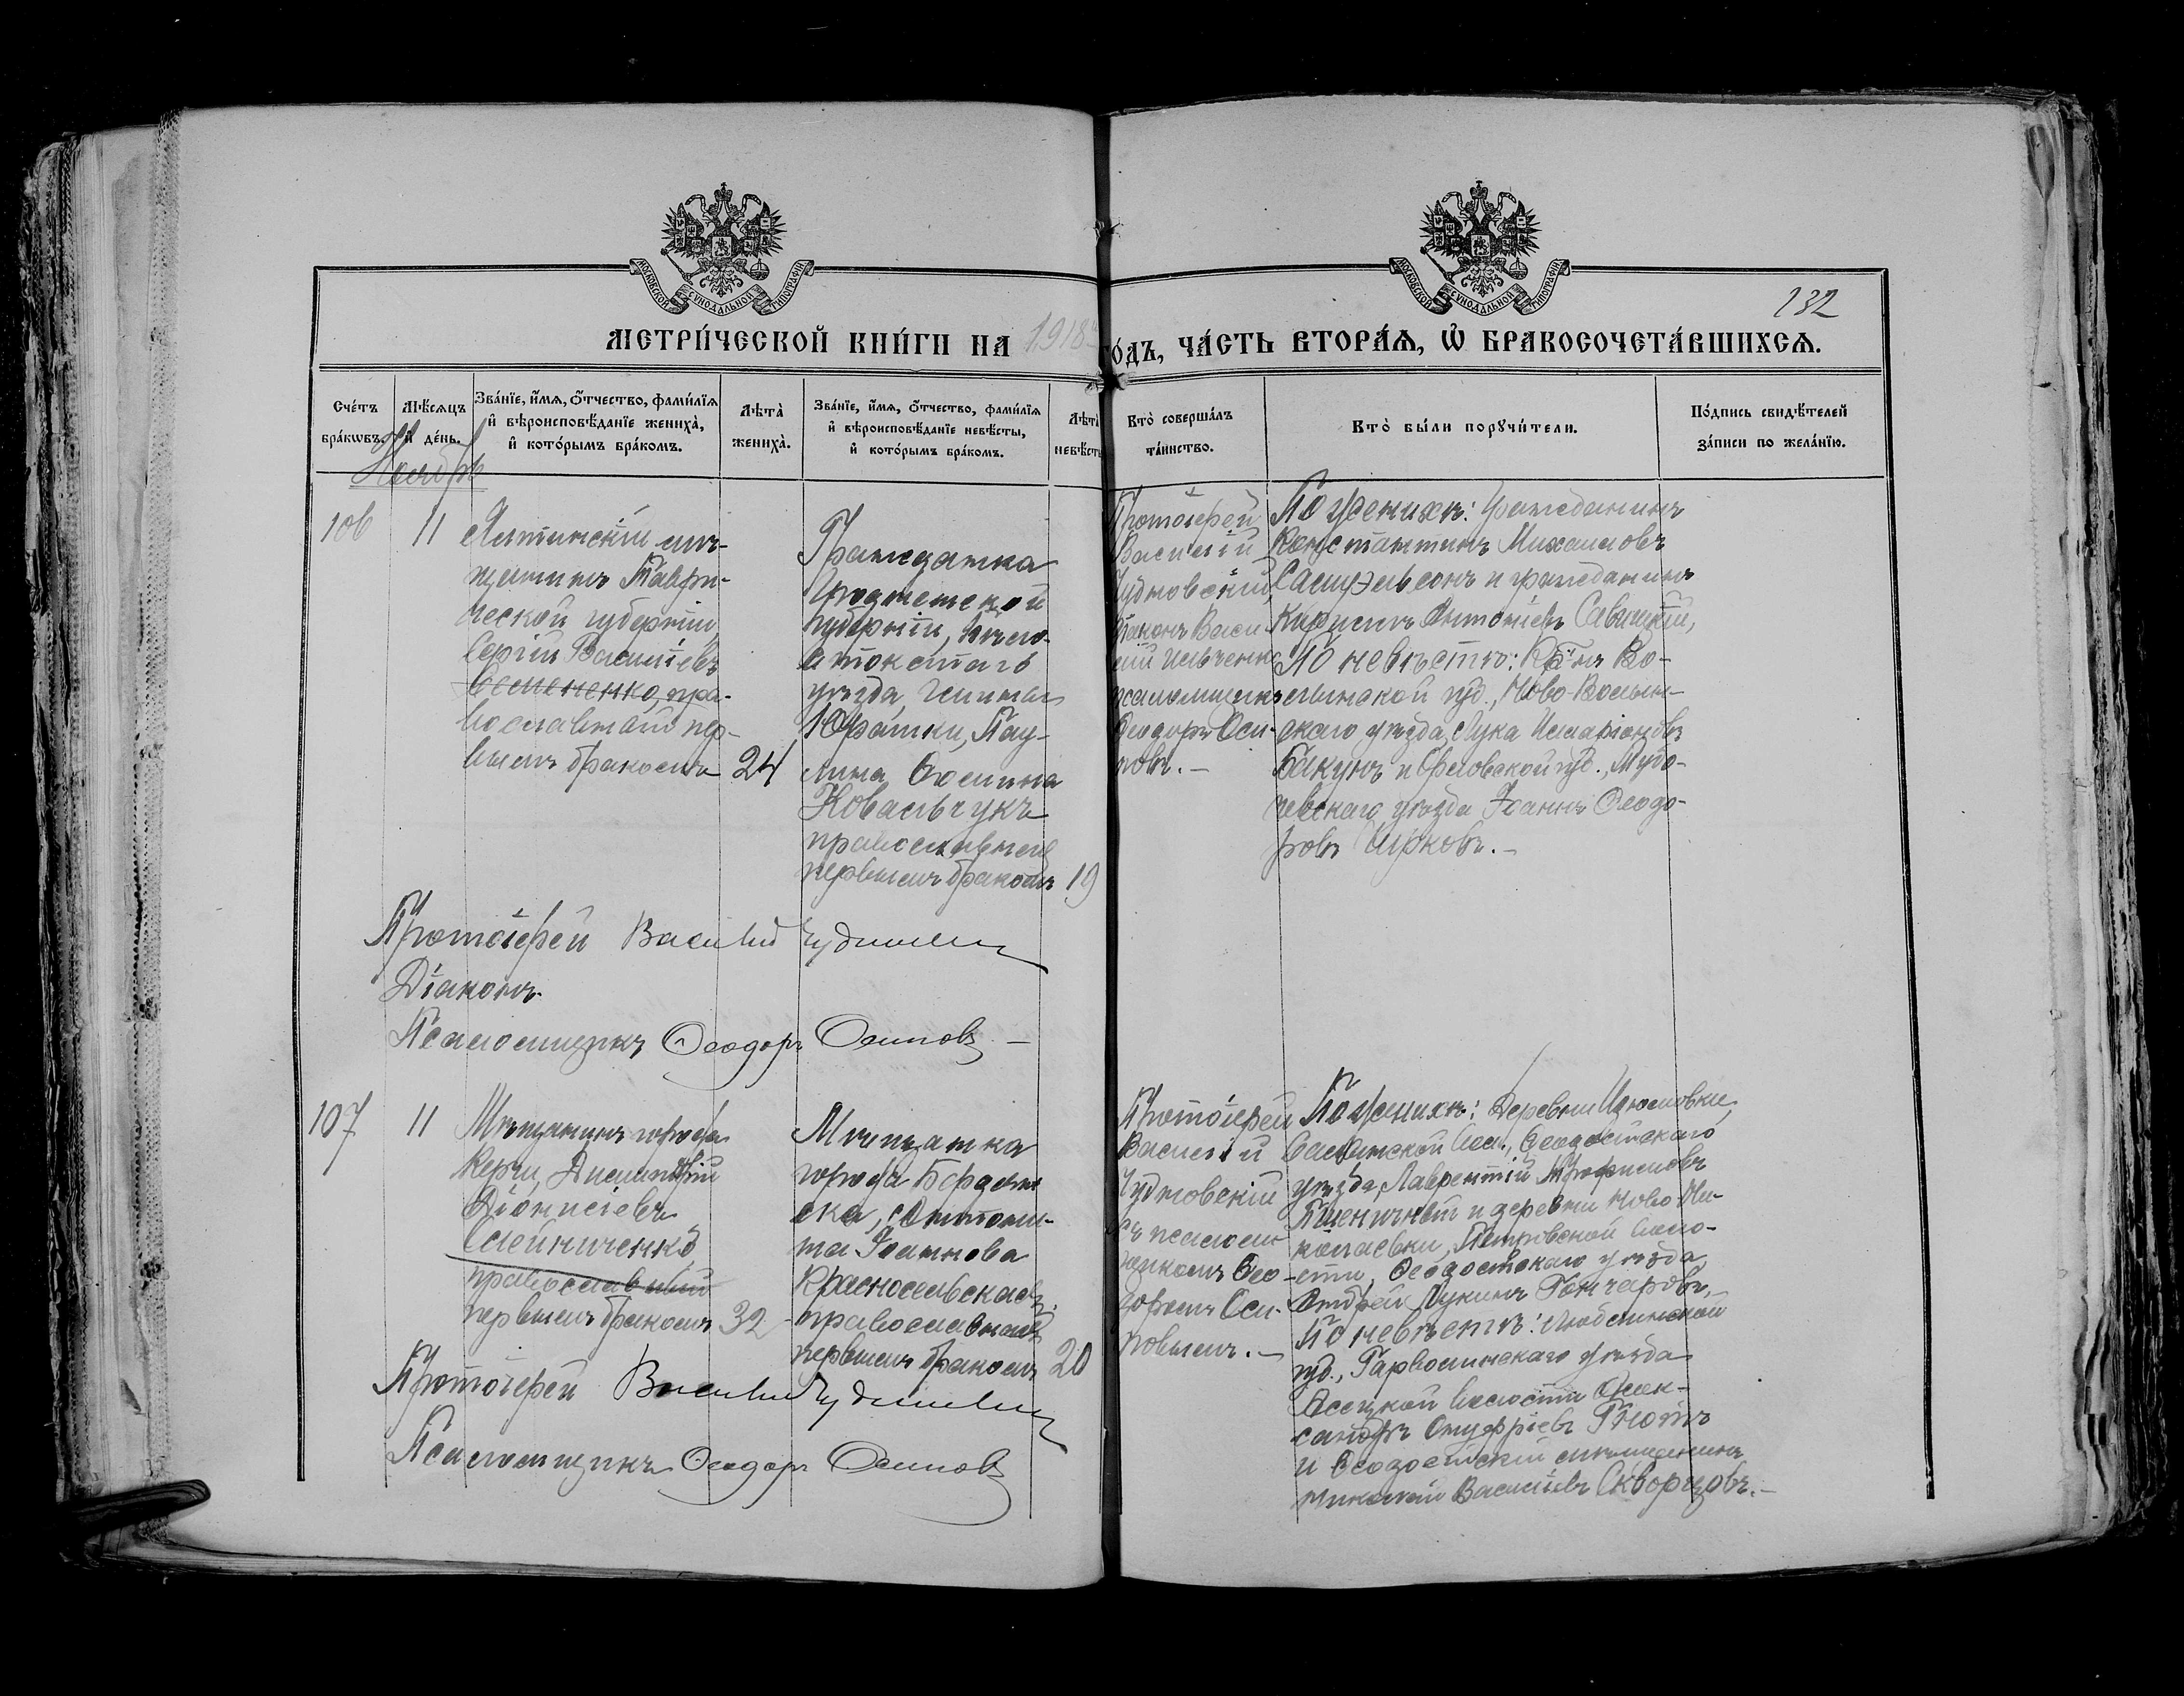 МОСКОВСКОЙ СѴНОДАЛЬНОЙ ТИПОГРАФІИ
МОСКОВСКОЙ СѴНОДАЛЬНОЙ ТИПОГРАФІИ
132
МЕТРИ́ЧЕСКОЙ КНИ́ГИ НА 1918й ГО́ДЪ, ЧА́СТЬ ВТОРА́Ѧ, Ѽ БРАКОСОЧЕТА́ВШИХСѦ.
Сче́тъ бра́кѡвъ.
Мѣ́сѧцъ и҆ де́нь.
Зва́нїе, и҆́мѧ, ѻ҆́тчество, фами́лїѧ и҆ вѣроисповѣ́данїе жениха̀, и҆ кото́рымъ бра́комъ.
Лѣта̀ жениха̀.
Зва́нїе, и҆́мѧ, ѻ҆́тчество, фами́лїѧ и҆ вѣроисповѣ́данїе невѣ́сты, и҆ кото́рымъ бра́комъ.
Лѣта̀ невѣ́сты
Кто̀ соверша́лъ та́инство.
Кто̀ бы́ли порꙋчи́тели.
По́дпись свидѣ́телей за́писи по жела́нїю.
Ноябрь
106
11
Ялтинскій мѣ-
щанинъ Таври-
ческой губерніи,
Сергій Васильевъ
Семененко, пра-
вославный пер-
вымъ бракомъ
24
Гражданка
Гродненской
губерніи, Бѣло-
стокскаго
уѣзда,
Юрашки, Пау-
лина Ѳомина
Ковальчукъ
православная
первымъ бракомъ
19
Протоіерей
Василій
Чудновскій,
Діаконъ Васи-
лій Ильченко
псаломщикъ
Ѳеодоръ Оси-
повъ. –
По женихѣ: гражданинъ
Константинъ Михаиловъ
Самуэльсонъ и гражданинъ
Кириллъ Антоніевъ Савицкій,
По невѣстѣ: Кр-нъ Во-
лынской губ., Ново-Волын-
скаго уѣзда Лука Иларіоновъ
Бакунъ и Орловской губ.,
уѣзда Іоаннъ Ѳеодо-
ровъ Чирковъ. –
Протоіерей Василій Чудновскій
Діаконъ
Псаломщикъ Ѳеодоръ Осиповъ –
107
11
Мѣщанинъ города
Керчи, Димитрій
Діонисіевъ
Слейниченко
православный
первымъ бракомъ
32
Мѣщанка
города Бердян-
ска, Антони-
на Іоаннова
Красносельская,
православная
первымъ бракомъ
20
Протоіерей
Василій
Чудновскій
съ псалом-
щикомъ Ѳео-
доромъ Оси-
повымъ. –
По женихѣ: Деревни Изюмовки,
Салынской вол., Ѳеодосійскаго
уѣзда, Лаврентій Трофимовъ
Пшеничный и деревни Ново Ни-
колаевки, Петровской воло-
сти, Ѳеодосійскаго уѣзда,
Андрей Лукинъ Гончаровъ,
По невѣстѣ: Люблинской
губ., Гарволинскаго уѣзда
волости Алек-
сандръ Онуфріевъ
и Ѳеодосійскій мѣщанинъ
Николай Васильевъ Скворцовъ. –
Протоіерей Василій Чудновскій
Псаломщикъ Ѳеодоръ Осиповъ